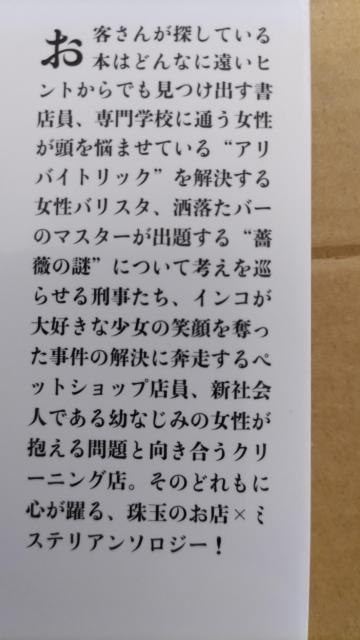 お客さんが探している
本はどんなに遠いヒ
ントからでも見つけ出す書
店員、専門学校に通う女性
が頭を悩ませている“アリ
バイトリック”を解決する
女性バリスタ、洒落たバー
のマスターが出題する“薔
薇の謎”について考えを巡
らせる刑事たち、インコが
大好きな少女の笑顔を奪っ
た事件の解決に奔走するペ
ットショップ店員、新社会
人である幼なじみの女性が
抱える問題と向き合うクリ
ーニング店。そのどれもに
心が躍る、珠玉のお店×ミ
ステリアンソロジー！